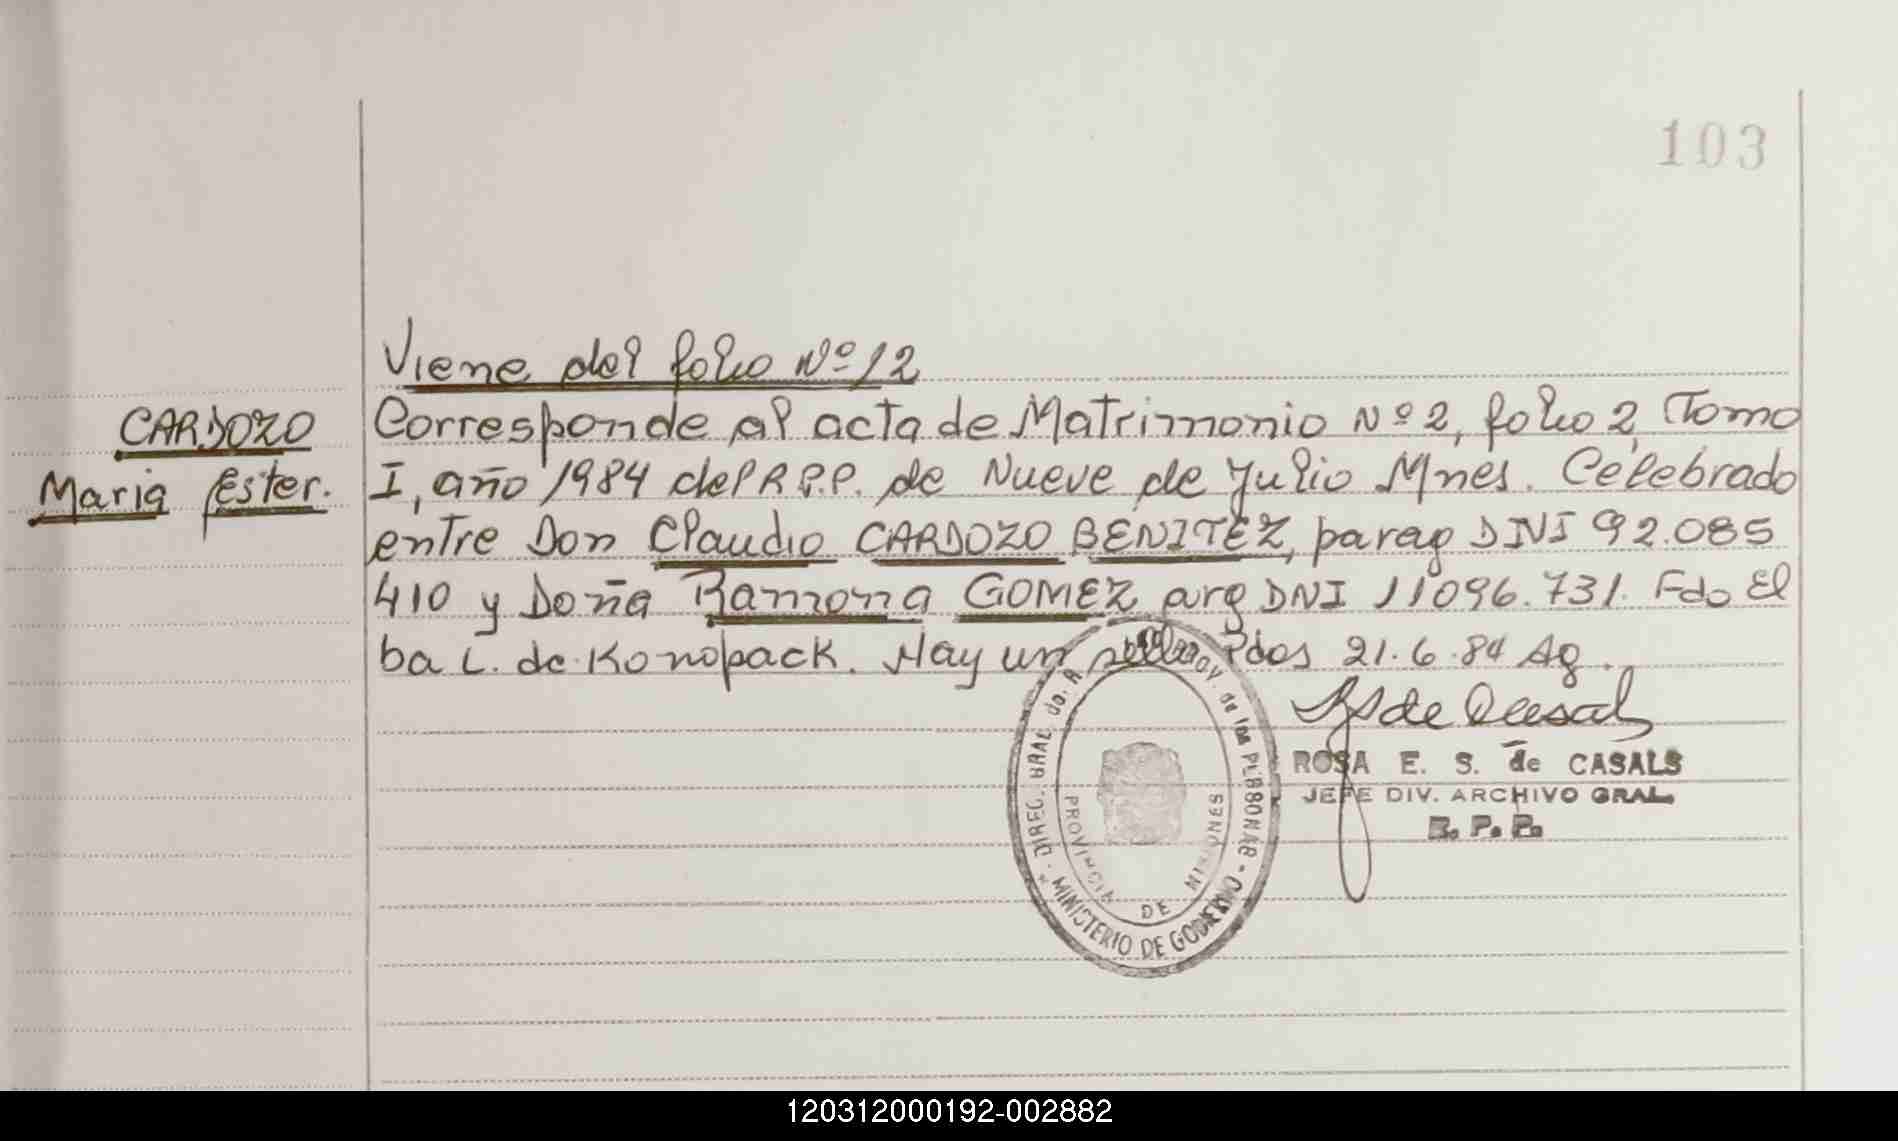 103
Viene del folio Nº 12
CARDOZO
Maria Ester.
Corresponde al acta de Matrimonio Nº 2, folio 2, Tomo
I, año 1984 del R.P.P. de Nueve de Julio Mnes. Celebrado
entre Don Claudio CARDOZO BENITEZ, parag DNI 92.085
410 y Doña Ramona GOMEZ arg DNI 11096.731. Fdo El
ba L. de Konopack. Hay un sello Pdas 21.6.84 Ag.
ROSA E. S. de CASALS
JEFE DIV. ARCHIVO GRAL.
R. P. P.
DIREC. GRAL. de las PERSONAS
MINISTERIO DE GOBIERNO
PROVINCIA DE MISIONES
120312000192-002882